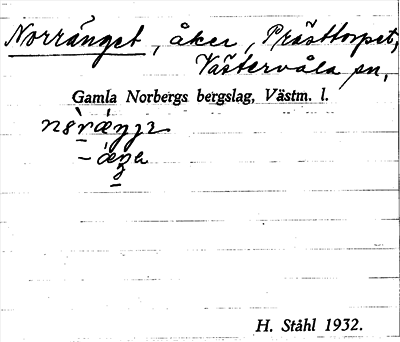 Norränget, åker, Prästtorpet,
Västervåla sn,
Gamla Norbergs bergslag, Västm. l.
H. Ståhl 1932.